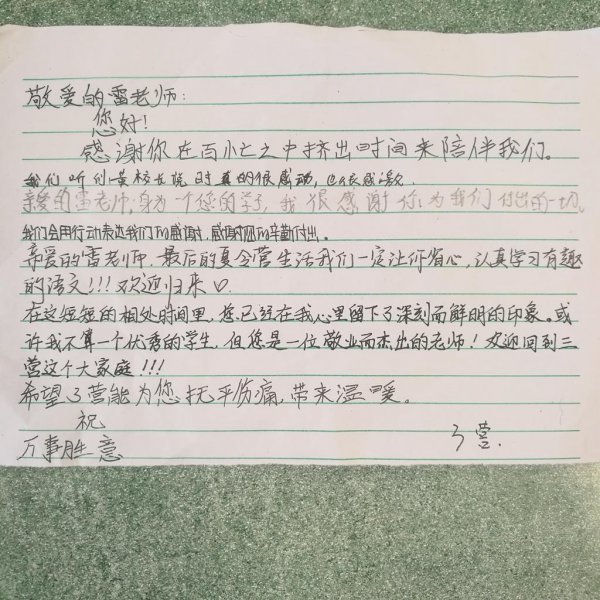 敬爱的雷老师:
您好!
感谢你在百忙之中挤出时间来陪伴我们。
我们听到黄校长说时真的很感动,也很感激
亲爱的雷老师,身为一个您的学子,我很感谢你为我们付出的一切。
我们会用行动表达我们的感谢,感谢您的辛勤付出。
亲爱的雷老师,最后的夏令营生活我们一定让你省心,认真学习有趣
的语文!!!欢迎归来口
在这短短的相处时间里,您已经在我心里留下了深刻而鲜明的印象。或
许我不算一个优秀的学生,但您是一位敬业而杰出的老师!欢迎回到三
营这个大家庭!!!
希望3营能为您抚平伤痛,带来温暖。
祝
万事胜意
3营.